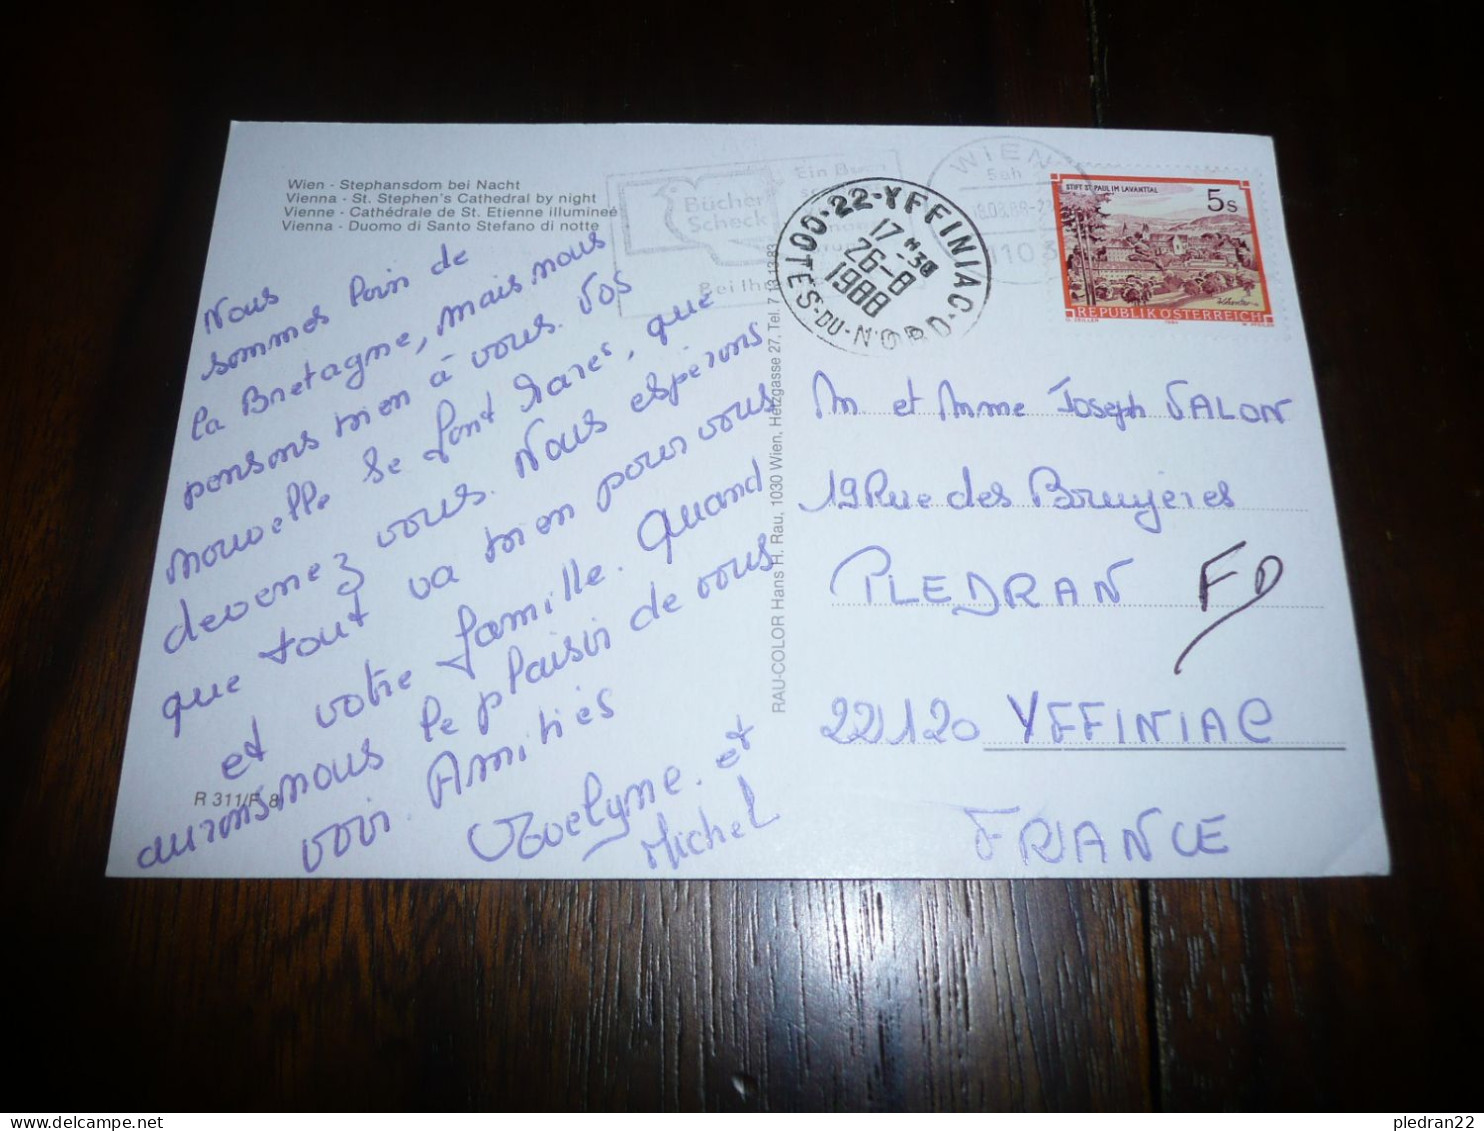 Wien - Stephansdom bei Nacht
Vienna - St. Stephen's Cathedral by night
Vienne - Cathédrale de St. Etienne illumineé
Vienna - Duomo di Santo Stefano di notte
Nous
sommes loin de
la Bretagne, mais nous
pensons bien à vous. Vos
nouvelle se font rares, que
devenez vous. Nous espérons
que tout va bien pour vous
et votre famille. Quand
aurons nous le plaisir de vous
voir. Amitiés
Evelyne. et
Michel
R 311/F 8
RAU-COLOR Hans H. Rau, 1030 Wien, Hetzgasse 27, Tel. 7 13 13 83
Bücher
Scheck
Ein Buch
Bei Ih
WIEN
1103
22-YFFINIAC
COTES-DU-NORD
17 H 30
26-8
1988
STIFT ST. PAUL IM LAVANTTAL
5s
REPUBLIK ÖSTERREICH
M et Mme Joseph VALON
19 Rue des Bruyères
PLEDRAN FD
22120 YFFINIAC
FRANCE
pledran22